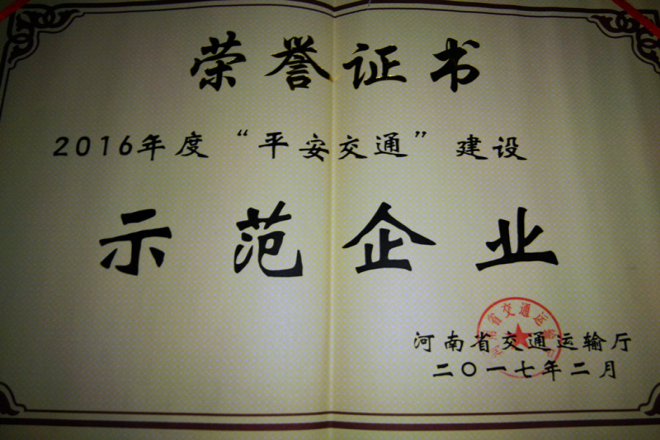 荣誉证书
2016年度“平安交通”建设
示范企业
河南省交通运输厅
河南省交通运输厅
二〇一七年二月